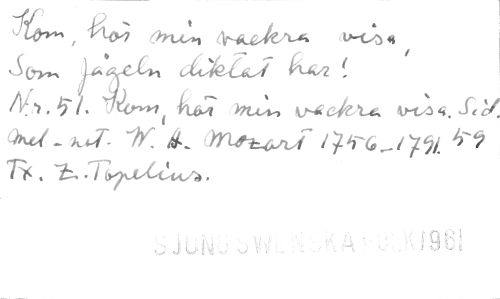 Kom, hör min vackra visa,
Som fågeln diktat har!
N:r. 51. Kom, hör min vackra visa. Sid.
mel-not. W. A. Mozart 1756-1791. 59
Tx. Z. Topelius.
SJUNG SWENSKA FOLK 1961